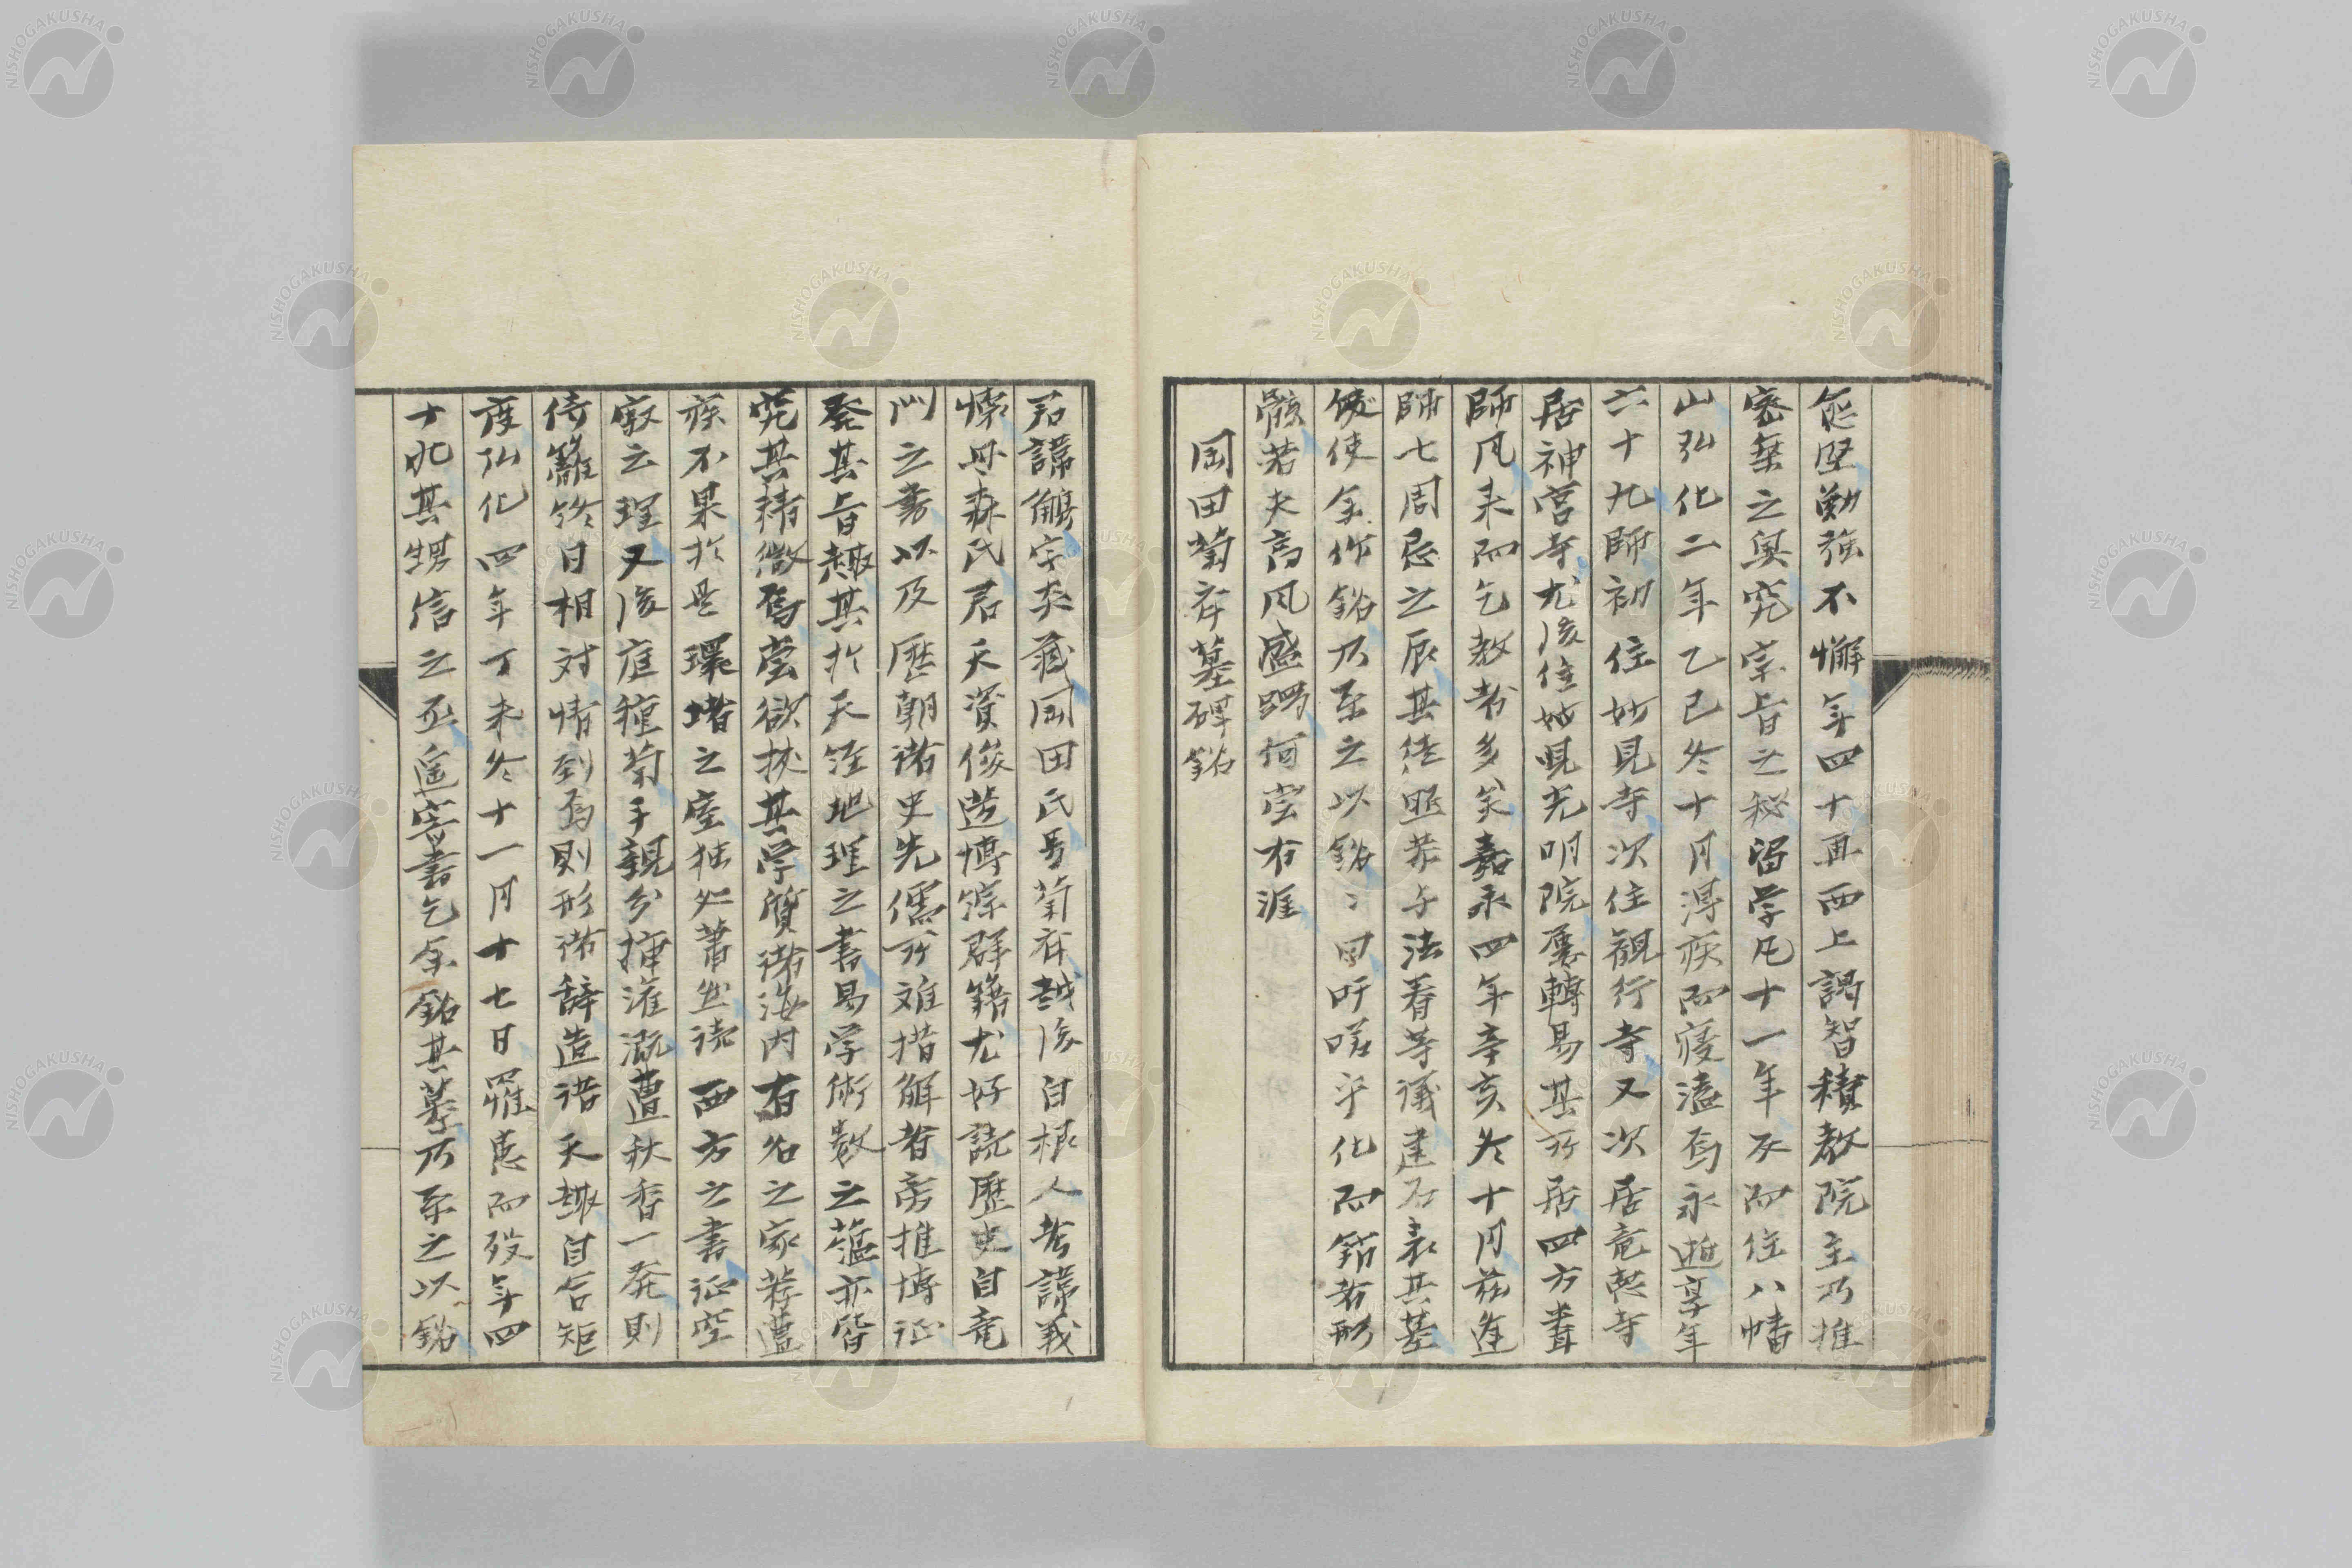 怠堅勤強不懈年四十再西上謁智積教院主乃推
密乗之奥究宗旨之秘留学凡十一年又而住八幡
山弘化二年乙巳冬十月得疾而寖溘焉永逝享年
六十九師初住妙見寺次住観行寺又次居竜慧寺
居神宮寺尤後住妙喚光明院屡轉易其所居四方耆
師凡来而乞教者多矣嘉永四年辛亥冬十月茲逢
師七周忌之辰其徒照恭与法眷等議建石表其墓
俊使余作銘乃系之以銘〻曰吁嗟乎化而銷者形
骸若夫高風盛躅何嘗有涯
岡田菊斎墓碑銘
君諱脩字太蔵岡田氏号菊斎越後白根人考諱義
憐丹森氏君天資俊邁博綜群籍尤好読歴史自竜
門之書以及歴朝諸史先儒所难措解者旁推博证
発其旨趣其於天经地理之書易学術数之蘊亦皆
究其精微焉嘗欲挾其学質諸海内有名之家荐遭
疾不果於是環堵之室独処蕭然读西方之書证空
寂之理又後庭種菊手親分挿灌漑遭秋香一発則
倚籬終日相対情到焉則形諸辞造诣天趣自合矩
度弘化四年丁未冬十一月十七日罹患而殁年四
十九其甥信之丞遥寄書乞余銘其墓乃系之以銘
NISHOGAKUSHA